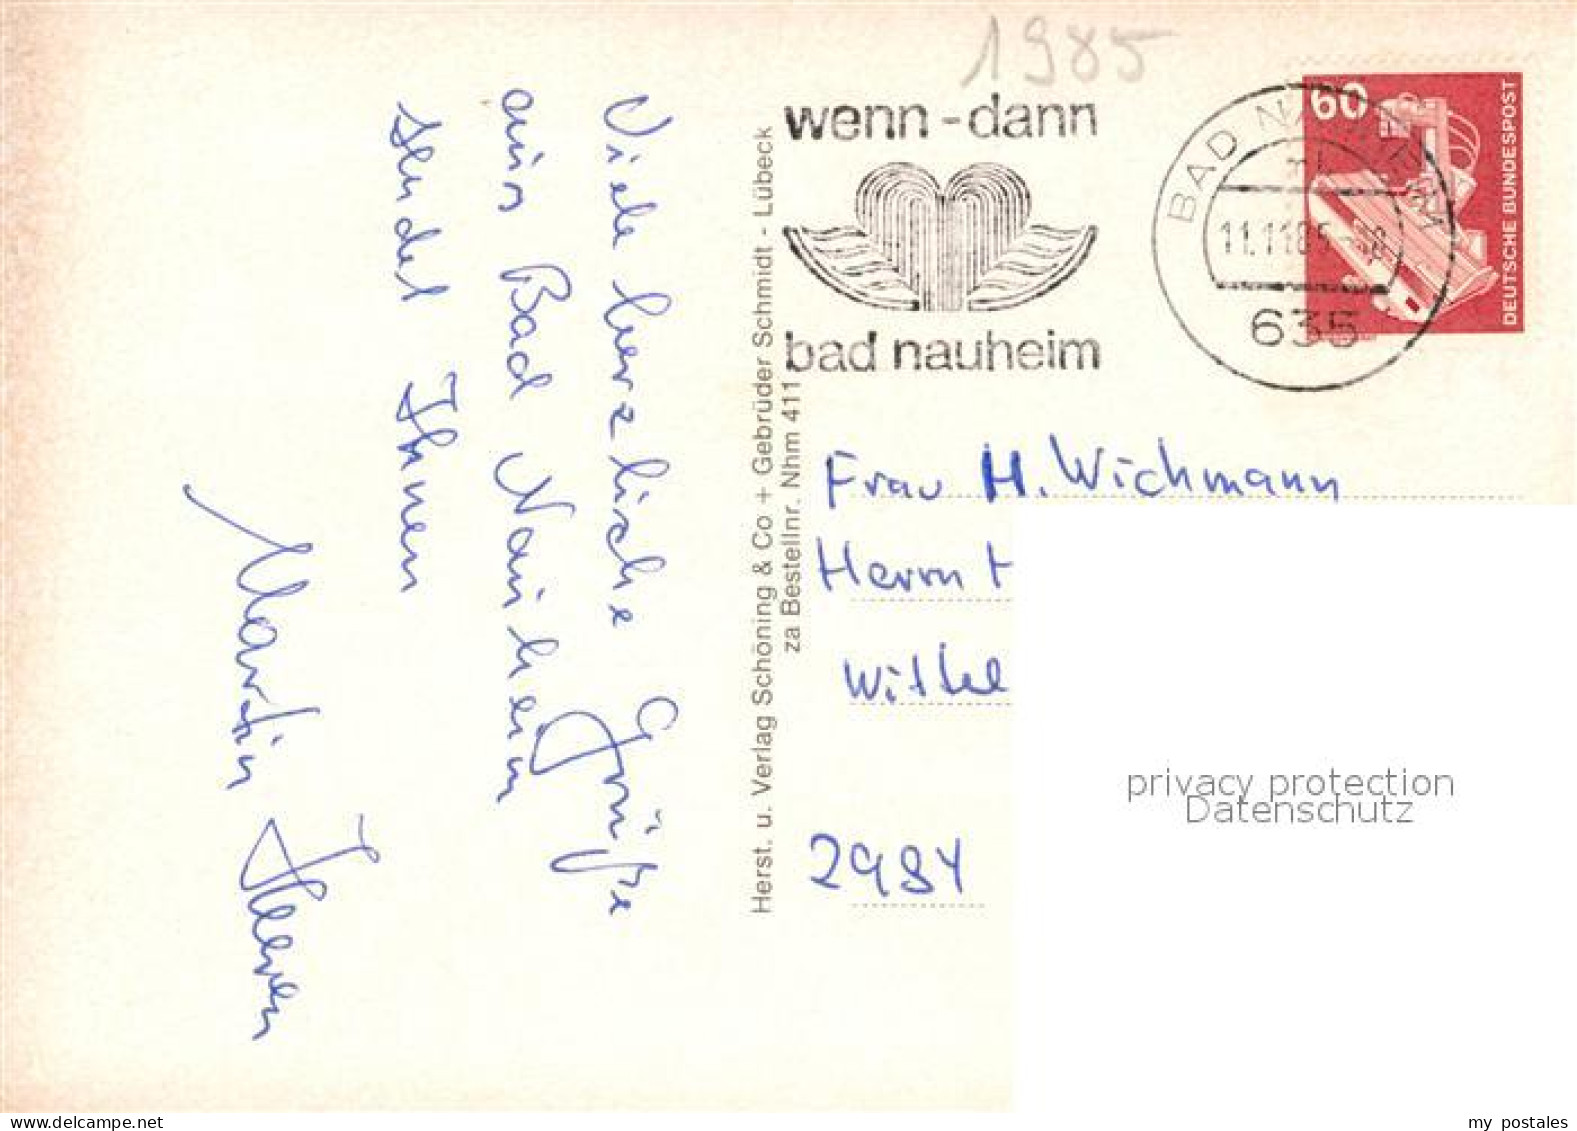 1985
wenn-dann
bad nauheim
60
DEUTSCHE BUNDESPOST
BAD NAUHEIM 1
11.11.85
635
Viele herzliche Grüße
aus Bad Nauheim
sendet Ihnen
Martin
Herst. u. Verlag Schöning & Co + Gebrüder Schmidt - Lübeck
za Bestellnr. Nhm 411
Frau H. Wichmann
Herrn H
Wilhel
2984
privacy protection
Datenschutz
my postales